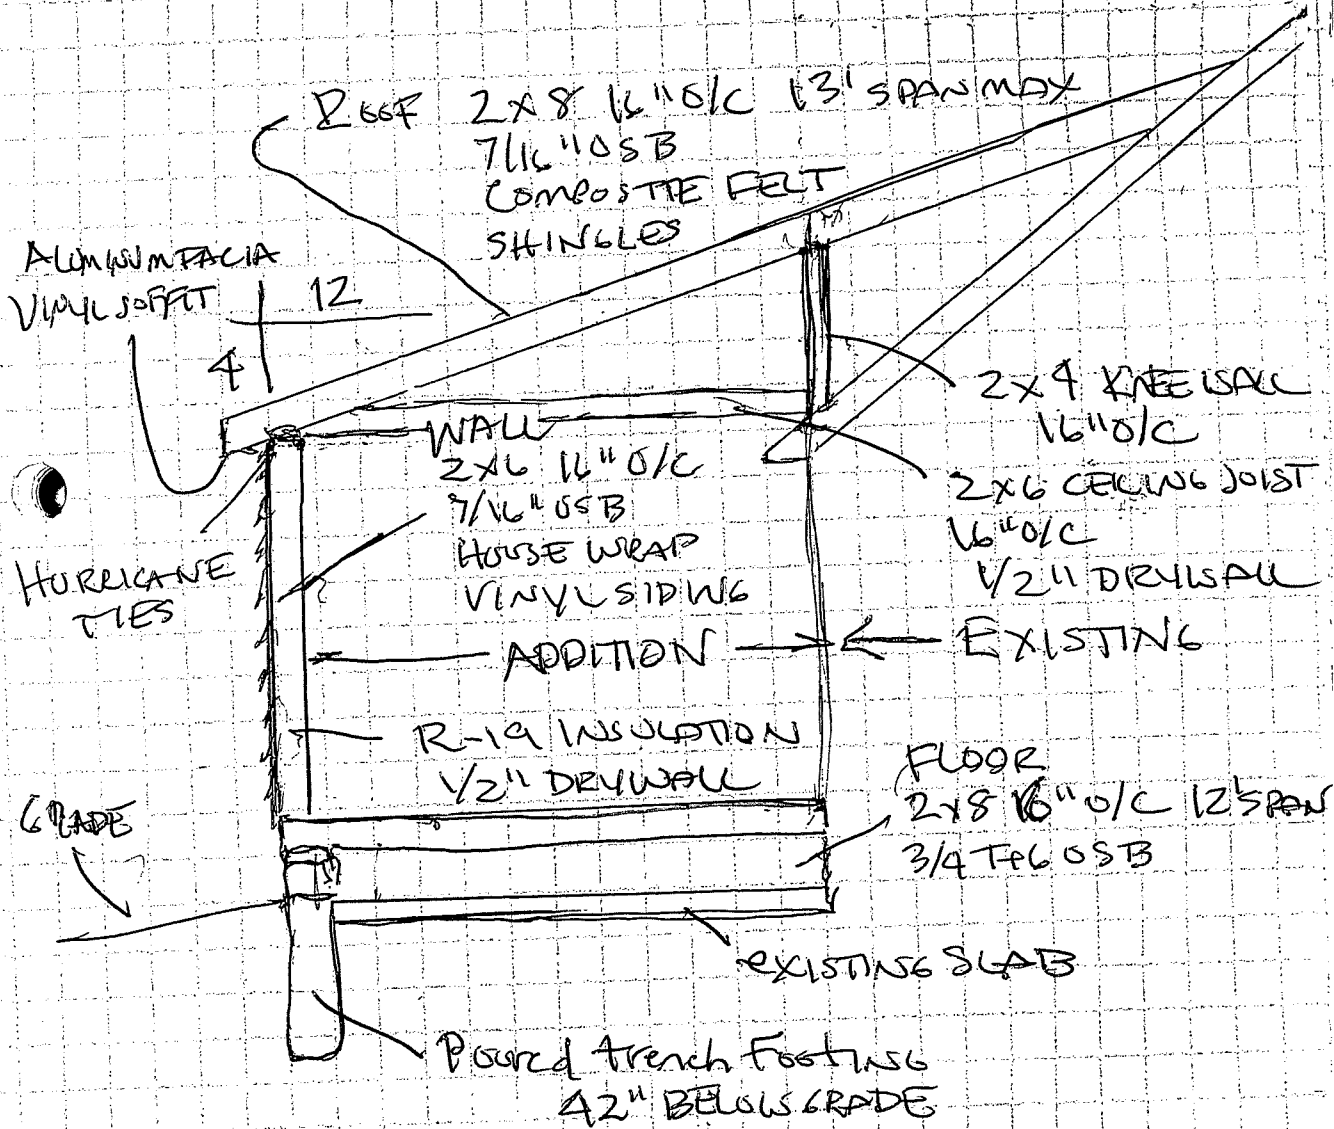 ROOF 2X8 16" O/C 13' SPAN MAX
7/16" OSB
COMPOSITE FELT
SHINGLES
ALUMINUM FACIA
VINYL SOFFIT
12
4
2X4 KNEEWALL
16" O/C
WALL
2X6 16" O/C
7/16" OSB
HOUSE WRAP
VINYL SIDING
2X6 CEILING JOIST
16" O/C
1/2" DRYWALL
HURRICANE
TIES
ADDITION
EXISTING
R-19 INSULATION
1/2" DRYWALL
FLOOR
2X8 16" O/C 12' SPAN
3/4 T+G OSB
GRADE
EXISTING SLAB
Poured trench Footing
42" BELOW GRADE